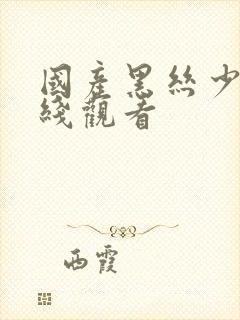 國產黑絲少
綫觀看
西霞